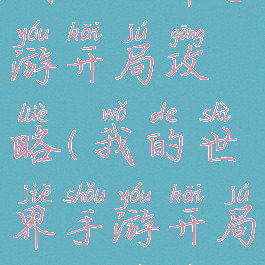 yóu kāi jú gōng
游开局攻
lüè wǒ de shì
略(我的世
jiè shǒu yóu kāi jú
界手游开局